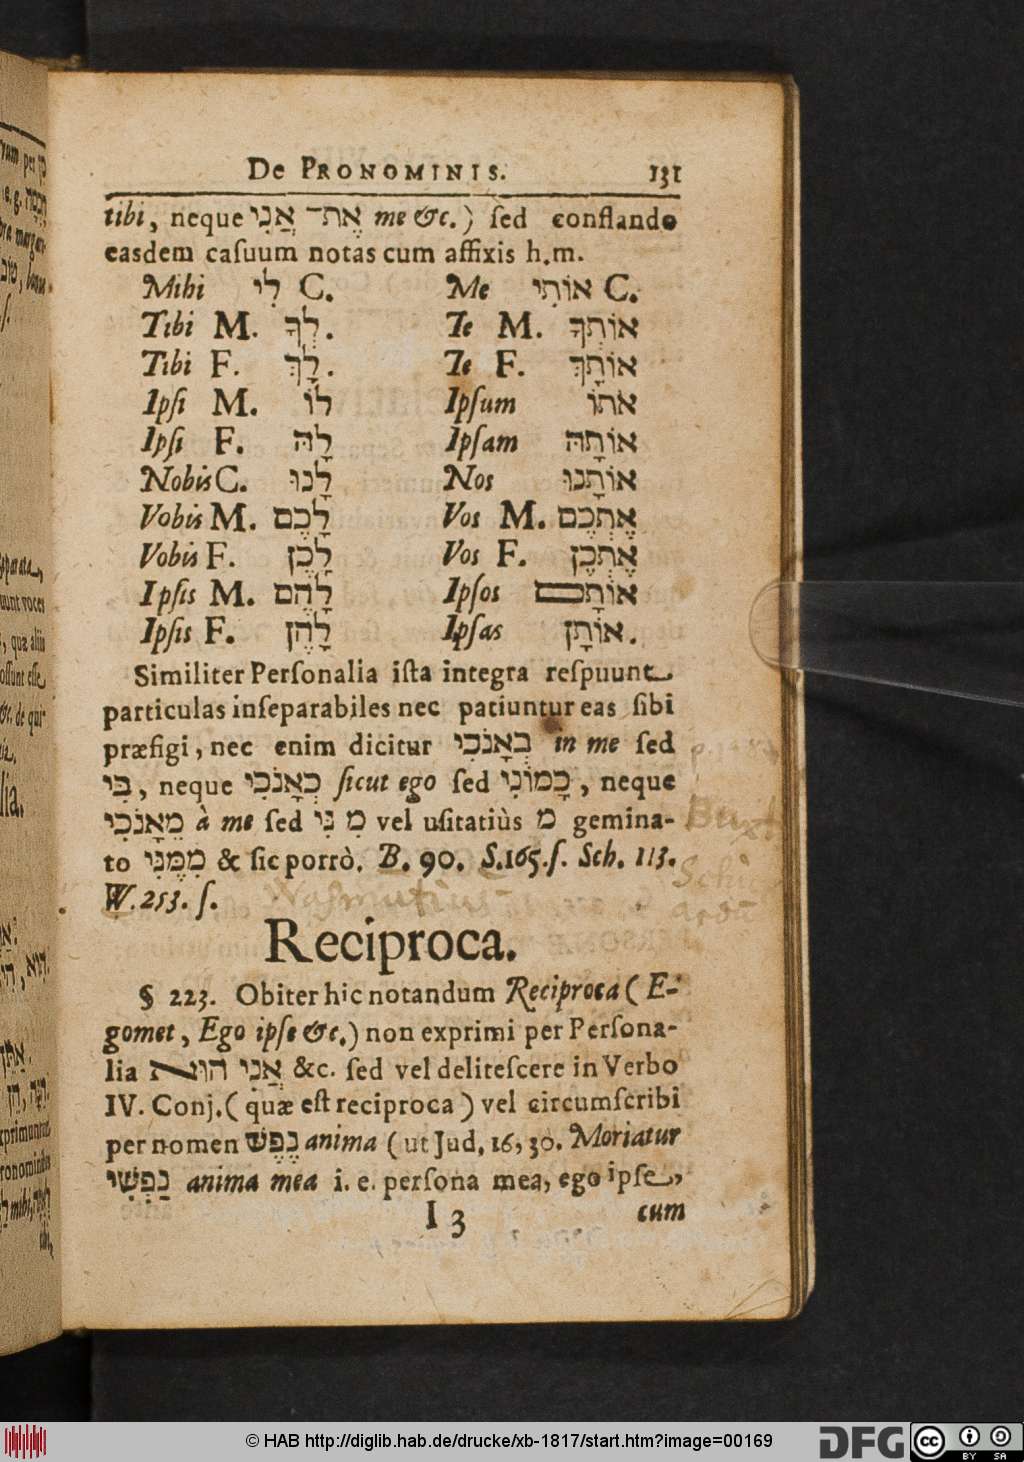 De Pronominis. 131
tibi, neque אֶת־ אֲנִי me &c.) ſed conflando
easdem caſuum notas cum affixis h.m.
Mihi לִי C. Me אוֹתִי C.
Tibi M. לְךָ. Te M. אוֹתְךָ
Tibi F. לָךְ. Te F. אוֹתָךְ
Ipſi M. לוֹ Ipſum אתוֹ
Ipſi F. לָהּ Ipſam אוֹתָהּ
Nobis C. לָנוּ Nos אוֹתָנוּ
Vobis M. לָכֶם Vos M. אֶתְכֶם
Vobis F. לָכֶן Vos F. אֶתְכֶן
Ipſis M. לָהֶם Ipſos אוֹתָם
Ipſis F. לָהֶן Ipſas אוֹתָן.
Similiter Perſonalia iſta integra reſpuunt
particulas inſeparabiles nec patiuntur eas ſibi
præfigi, nec enim dicitur בְאָנֹכִי in me ſed
בִּי, neque כְאָנֹכִי ſicut ego ſed כָמוֹנִי, neque
מֵאָנֹכִי à me ſed מִ נִּי vel uſitatiùs מ gemina-
to מִמֶּנִּי & ſic porrò. B. 90. S. 165. ſ. Sch. 113.
W. 253. ſ.
Buxt
Schic
ardū
Wasmutius
Reciproca.
§ 223. Obiter hic notandum Reciproca (E-
gomet, Ego ipſe &c.) non exprimi per Perſona-
lia אֲנִי הוּא &c. ſed vel deliteſcere in Verbo
IV. Conj. (quæ eſt reciproca) vel circumſcribi
per nomen נֶפֶשׁ anima (ut Jud. 16, 30. Moriatur
נַפְשִׁי anima mea i. e. perſona mea, ego ipſe,
I 3 cum
© HAB http://diglib.hab.de/drucke/xb-1817/start.htm?image=00169
DFG cc BY SA